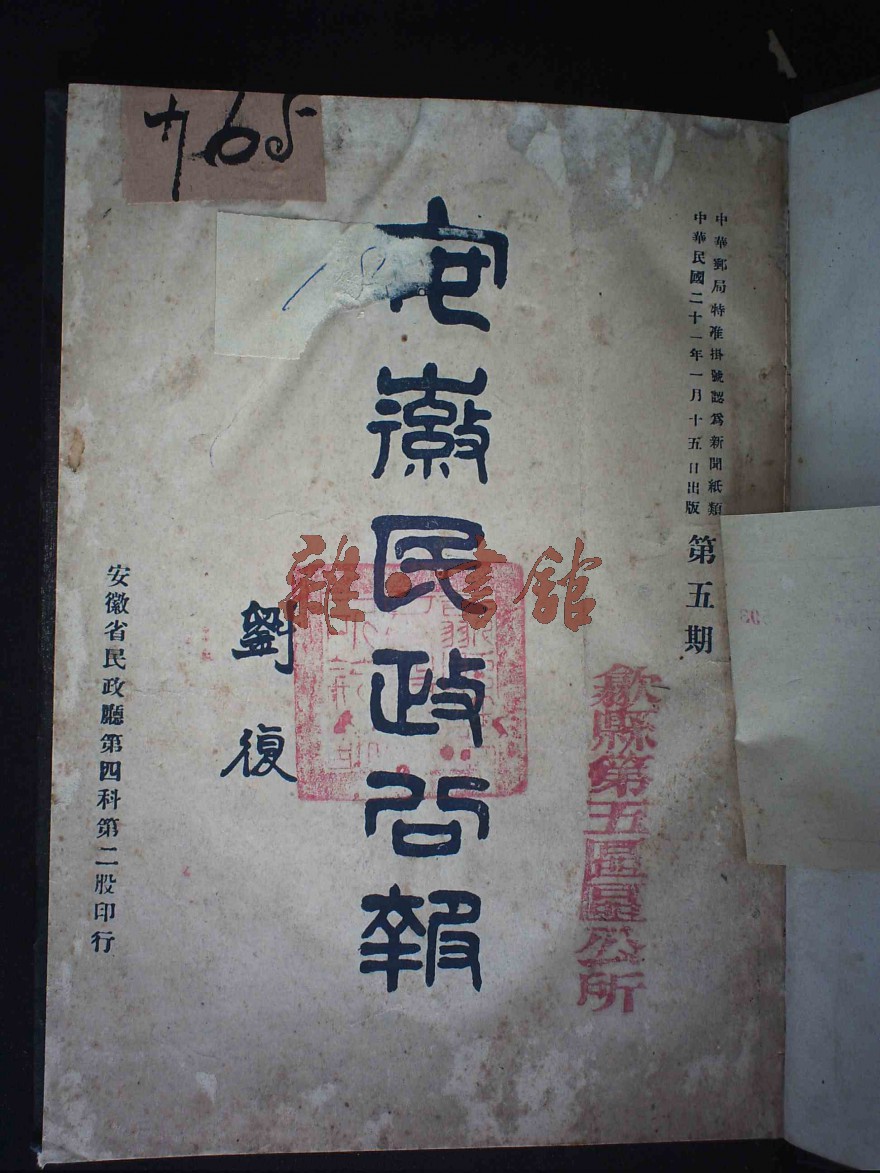 中華郵局特准掛號認爲新聞紙類
中華民國二十一年一月十五日出版
第五期
歙縣第五區區公所
安徽民政公報
劉復
安徽省民政廳第四科第二股印行
雜·書館